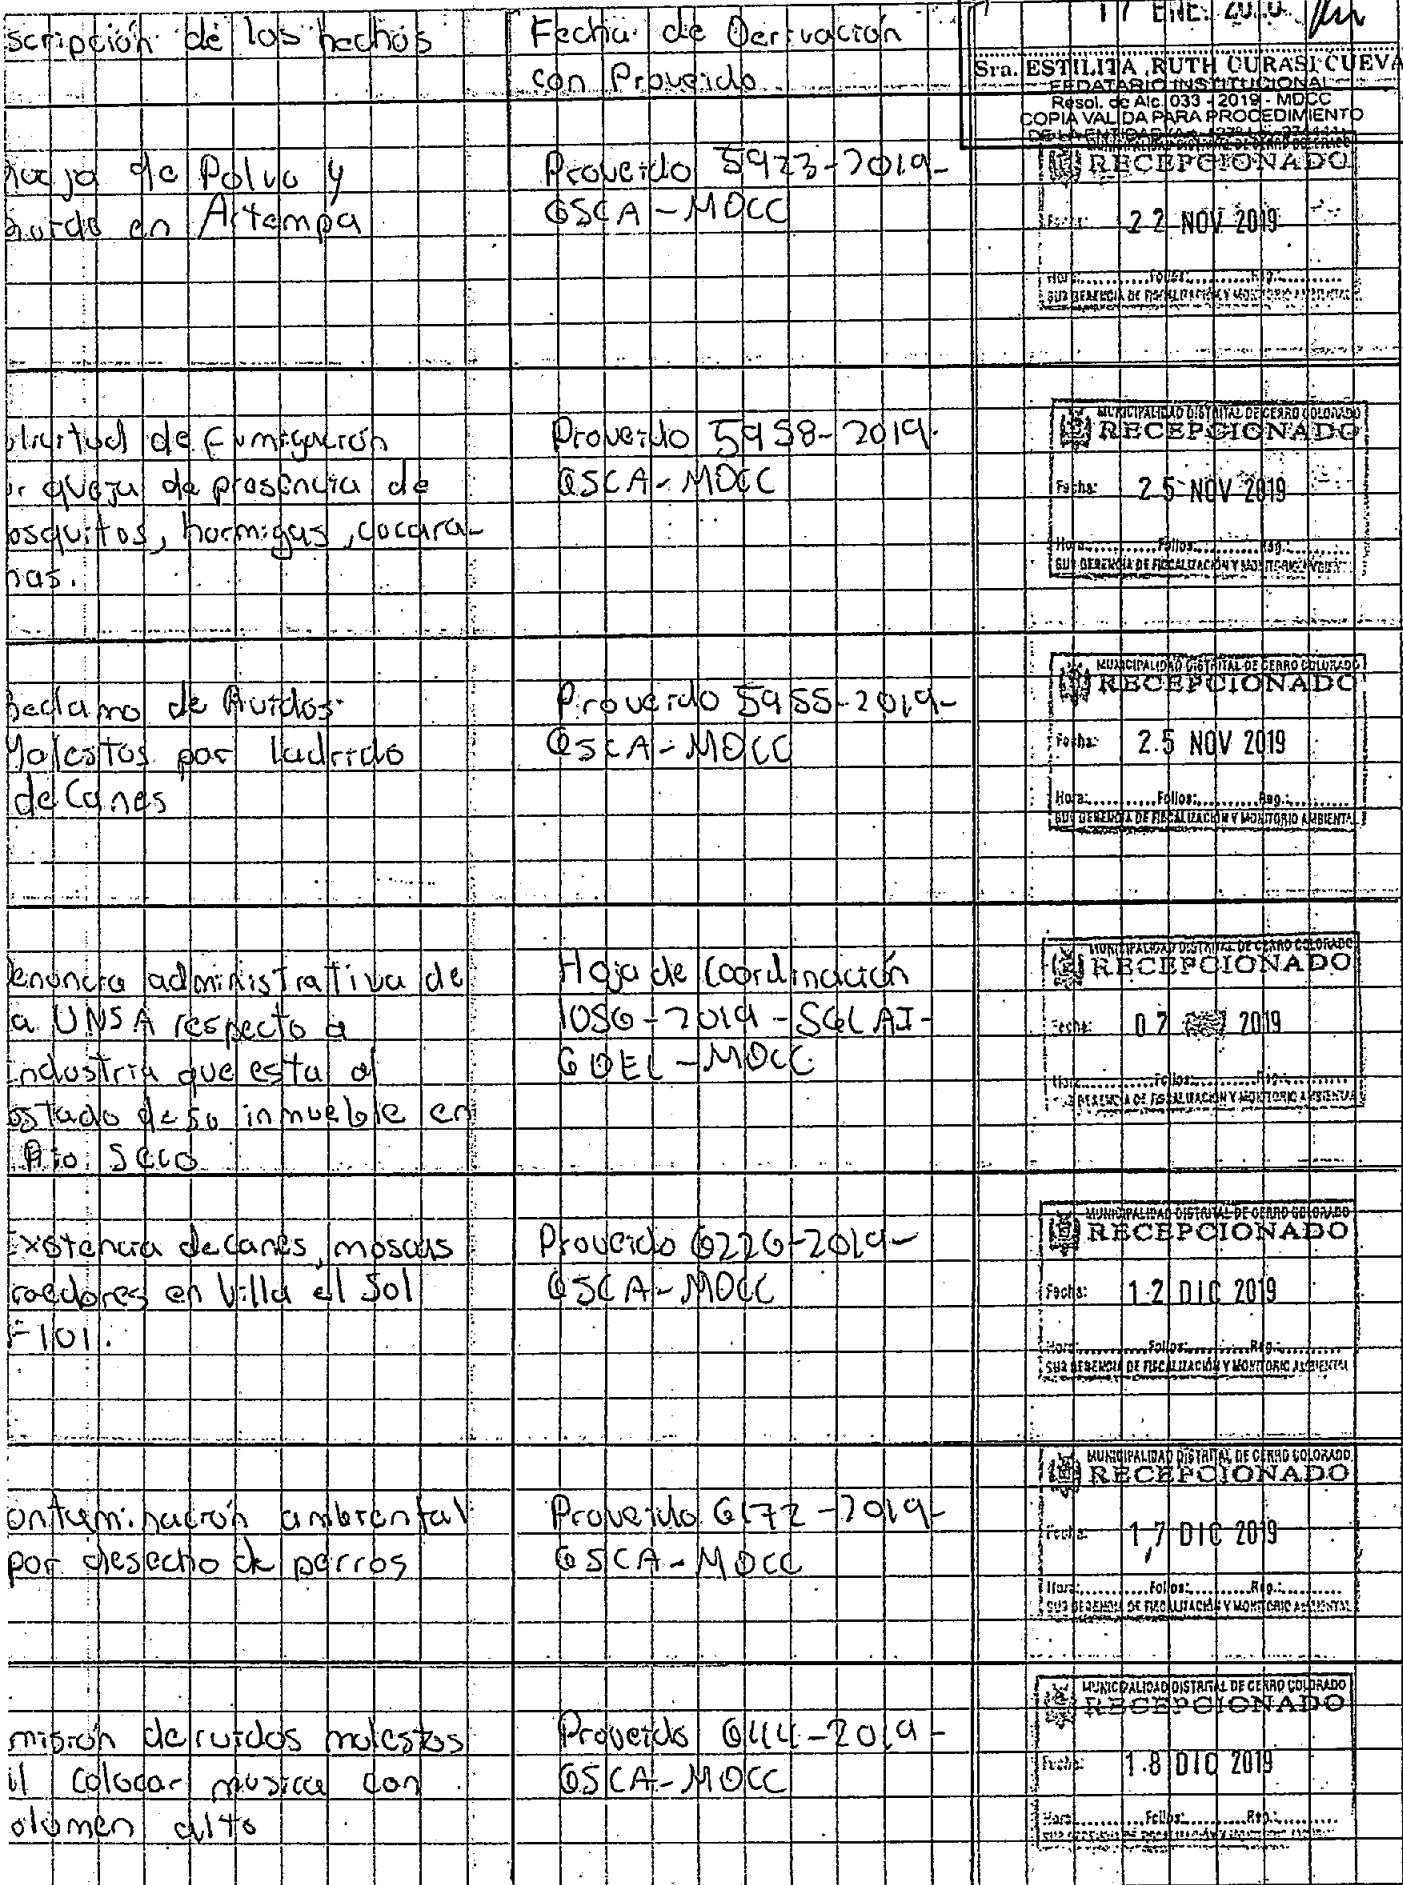 scripción de los hechos
Fecha de Derivación
con Proveido
17 ENE. 20
Sra. ESTILITA RUTH CURASI CUEVA
FEDATARIO INSTITUCIONAL
Resol. de Alc. 033 - 2019 - MDCC
COPIA VALIDA PARA PROCEDIMIENTO
DE LA ENTIDAD
ueja de Polvo y
uido en Artempa
Proveido 5923-2019-
GSCA-MDCC
RECEPCIONADO
Fecha: 22 NOV 2019
Hora:..........Folios:..........Reg.:..........
SUB GERENCIA DE FISCALIZACIÓN Y MONITORIO AMBIENTAL
olicitud de fumigación
or queja de presencia de
osquitos, hormigas, cucara-
has.
Proveido 5958-2019-
GSCA-MDCC
MUNICIPALIDAD DISTRITAL DE CERRO COLORADO
RECEPCIONADO
Fecha: 25 NOV 2019
Hora:..........Folios:..........Reg.:..........
SUB GERENCIA DE FISCALIZACIÓN Y MONITORIO AMBIENT
Reclamo de Ruidos
Molestos por ladrido
de Canes
Proveido 5955-2019-
GSCA-MDCC
MUNICIPALIDAD DISTRITAL DE CERRO COLORADO
RECEPCIONADO
Fecha: 25 NOV 2019
Hora:..........Folios:..........Reg.:..........
SUB GERENCIA DE FISCALIZACIÓN Y MONITORIO AMBIENTAL
enuncia administrativa de
a UNSA respecto a
industria que esta al
ostado de su inmueble en
Rio Seco
Hoja de Coordinación
1056-2019-SGLAI-
GDEL-MDCC
MUNICIPALIDAD DISTRITAL DE CERRO COLORADO
RECEPCIONADO
Fecha: 02 2019
Hora:..........Folios:..........Reg.:..........
SUB GERENCIA DE FISCALIZACIÓN Y MONITORIO AMBIENTAL
Existencia de canes, moscas
roedores en Villa el Sol
F-101.
Proveido 6226-2019-
GSCA-MDCC
MUNICIPALIDAD DISTRITAL DE CERRO COLORADO
RECEPCIONADO
Fecha: 12 DIC 2019
Hora:..........Folios:..........Reg.:..........
SUB GERENCIA DE FISCALIZACIÓN Y MONITORIO AMBIENTAL
ontaminación ambiental
por desecho de perros
Proveido 6172-2019-
GSCA-MDCC
MUNICIPALIDAD DISTRITAL DE CERRO COLORADO
RECEPCIONADO
Fecha: 17 DIC 2019
Hora:..........Folios:..........Reg.:..........
SUB GERENCIA DE FISCALIZACIÓN Y MONITORIO AMBIENTAL
misión de ruidos molestos
al colocar musica con
olumen alto
Proveido -2019-
GSCA-MDCC
MUNICIPALIDAD DISTRITAL DE CERRO COLORADO
RECEPCIONADO
Fecha: 18 DIC 2019
Hora:..........Folios:..........Reg.:..........